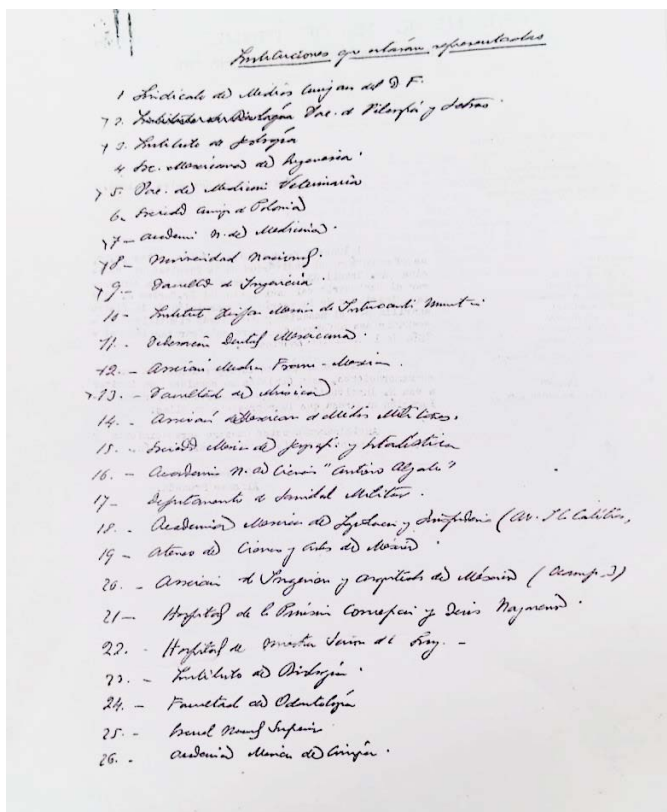 Instituciones qe estarán representadas
1 Sindicato de Medicos Cirujan del D F.
2. Fac. de Filosofía y Letras.
3. Instituto de Geología
4. Soc. Mexicana de Ingeniería.
5. Fac. de Medicina Veterinaria
6. Sociedad Polonia
7 - Academi N. de Medicina.
8 - Universidad Nacional.
9. - Facultad de Ingeniería.
10 - Institut de
11. - Federación Dental Mexicana.
12. - Asociación Medica Franco-Mexican.
13. - Facultad de Música
14. - Asociaci Mexican de Médicos Militares.
15. - Sociedad Mexica de Geografi y Estadística
16. - Academia N. de Ciencias "Antonio Alzate"
17 - Departamento de Sanidad Militar.
18. - Academia Mexican de Legislacion y Jurisprudencia (Av.
19 - Ateneo de Ciencias y Artes de México
20. - Asociacion de Ingenieros y Arquitectos de México (
21 - Hospital de la Purísima Concepcion y Jesús Nazareno.
22. - Hospital de Nuestra Señora de la Luz. -
23. - Instituto de Biología.
24. - Facultad de Odontología
25. - Escuel Normal Superior
26. - Academia Mexican de Cirugía.